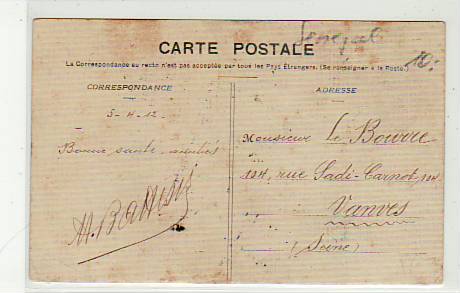 Senegal
10.
CARTE POSTALE
La Correspondance au recto n'est pas acceptée par tous les Pays Étrangers. (Se renseigner à la Poste.)
CORRESPONDANCE
ADRESSE
5-4-12.
Bonne santé amitiés
Monsieur Le Bourre
124, rue Sadi-Carnot, 124
Vanves
(Seine)